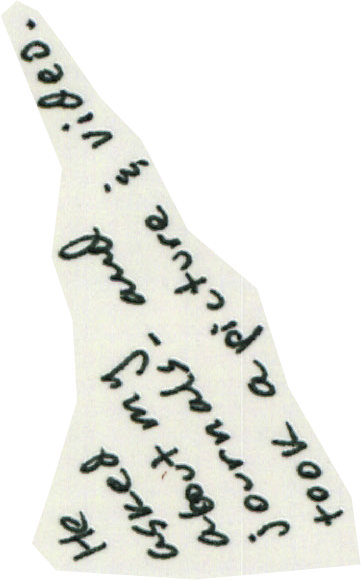 He
asked
about my
journals - and
took a picture in video.